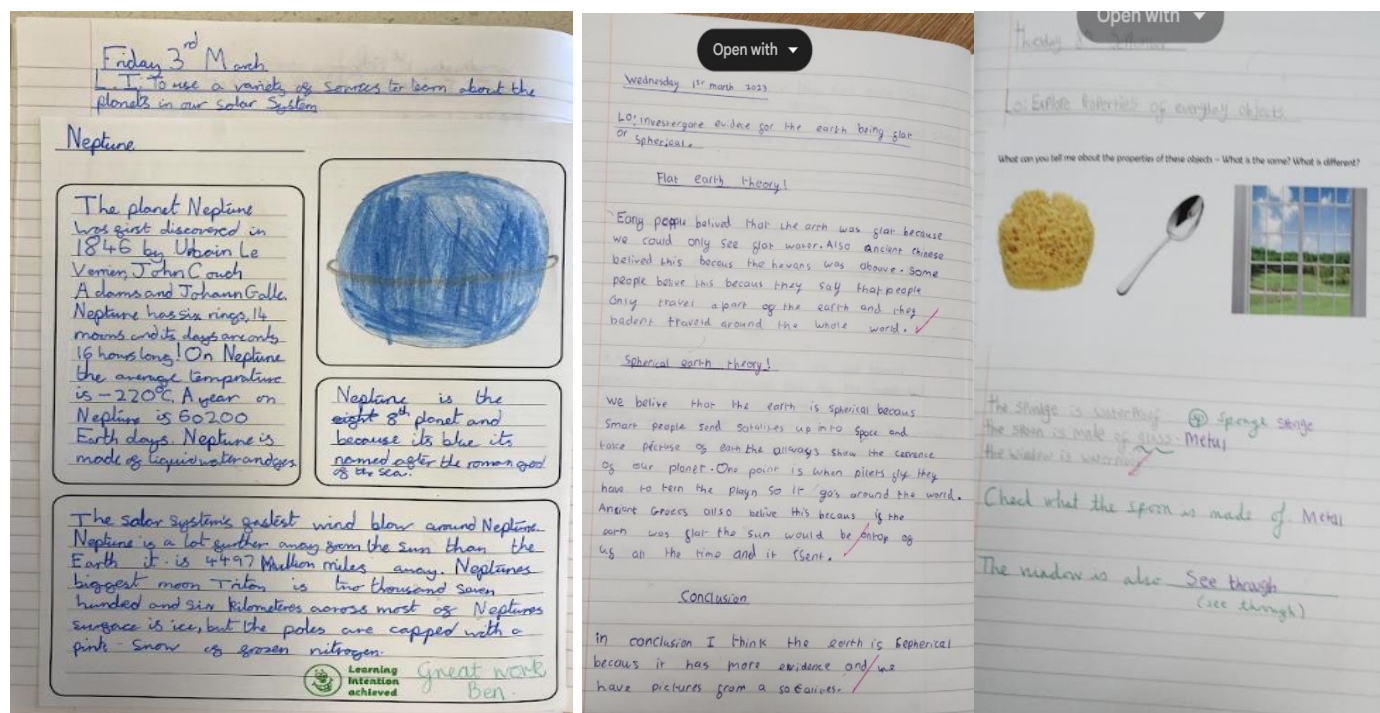 Friday 3rd March
L.I: To use a variety of sources to learn about the
planets in our Solar System
Neptune
The planet Neptune
was first discovered in
1846 by Urbain Le
Verrier, John Couch
Adams and Johann Galle.
Neptune has six rings, 14
moons and its days are only
16 hours long! On Neptune
the average temprature
is -220°C. A year on
Neptune is 60200
Earth days. Neptune is
made of liquid water and ges
Neptune is the
eight 8th planet and
because its blue its
named after the roman god
of the sea.
The solar system's fastest wind blow around Neptune.
Neptune is a lot further away from the sun than the
Earth it is 4497 Million miles away. Neptunes
biggest moon Triton is two thousand seven
hundred and six kilometeres across most of Neptunes
surface is ice, but the poles are capped with a
pink snow of frozen nitrogen.
Learning
Intention
achieved
Great work
Ben.
Open with
Wednesday 1st march 2023
LO: investergate evidece for the earth being flat
or spherical.
Flat earth theory!
Eary people belived that the arth was flat because
we could only see flat water. Also ancient chinese
belived this becaus the hevans was abouve. Some
people belive this becaus they say that people
only travel apart of the earth and they
hadent traveld around the whole world.
Spherical earth theory!
We belive that the earth is spherical becaus
smart people send satalites up into space and
take pectuse of earth the allways show the
of our planet. One point is when pilets fly they
have to tern the playn so it go's around the world.
Ancient Greecs allso belive this becaus if the
earth was flat the sun would be ontop of
us all the time and it isent.
Conclusion
in conclusion I think the earth is Spherical
becaus it has more evidence and we
have pictures from a satalites.
Open with
Lo: Explore Properties of everyday objects
What can you tell me about the properties of these objects – What is the same? What is different?
the spundge is waterproof. sp sponge
the spoon is made of glass. Metal
the window is waterproof
Check what the spoon is made of. Metal
The window is also See through
(see through)